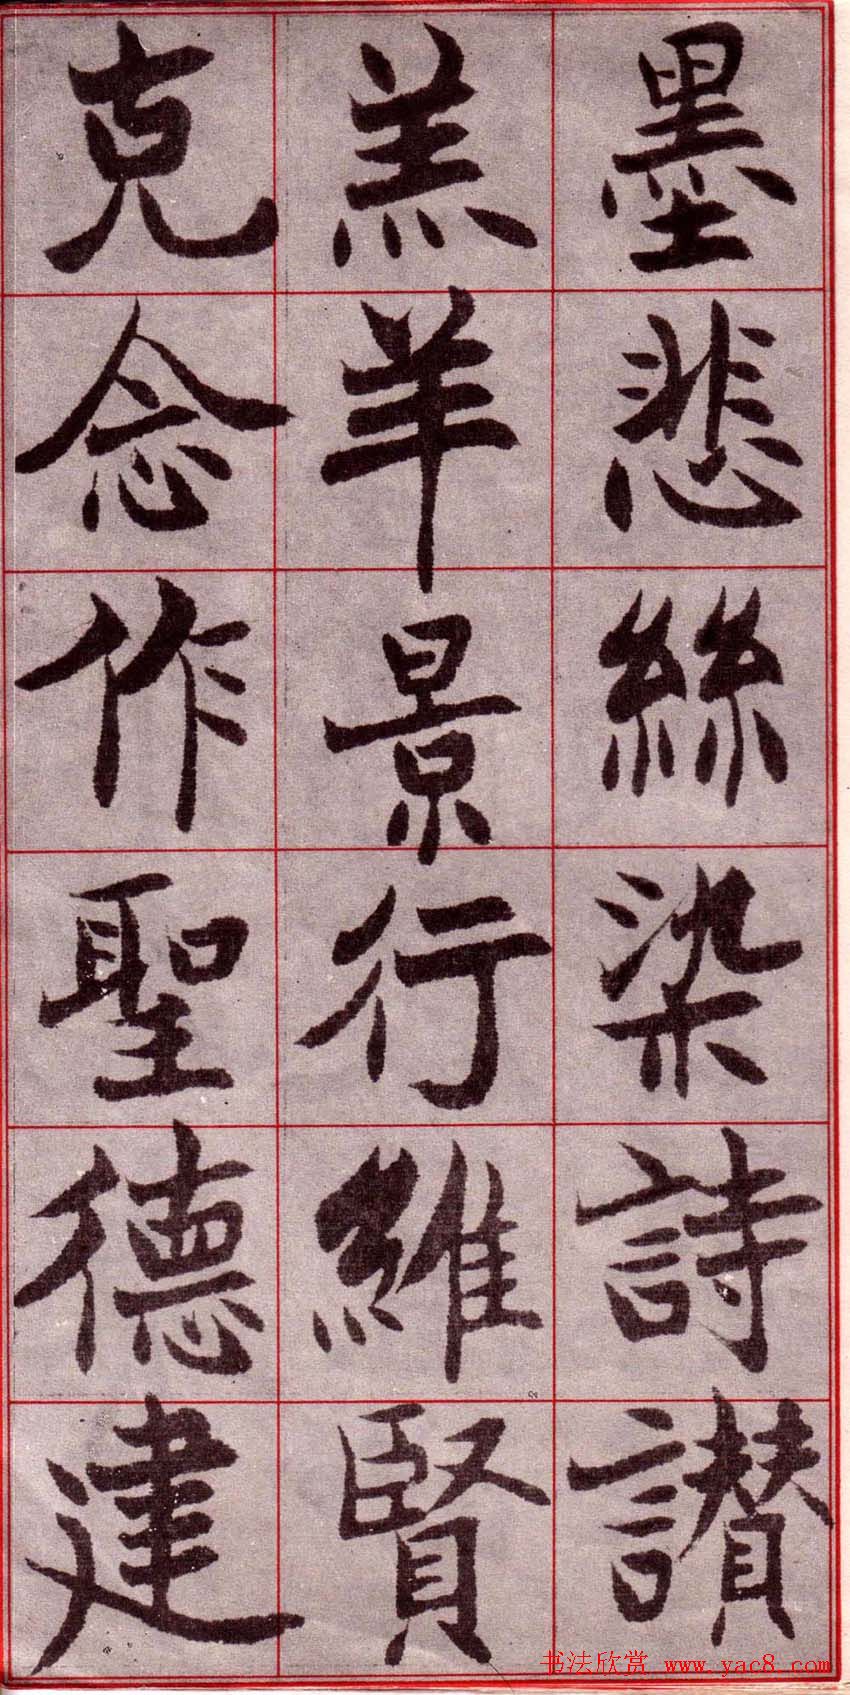 墨悲絲染詩讃
羔羊景行維賢
克念作聖德建
书法欣赏 www.yac8.com